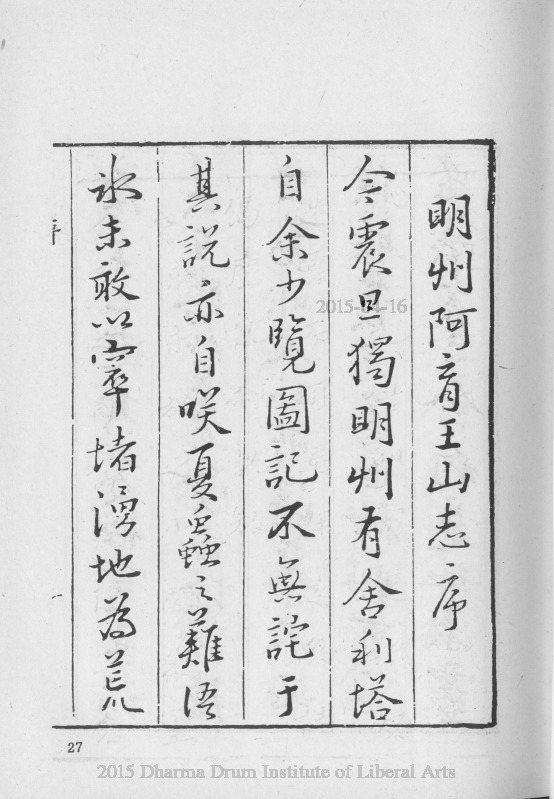 明州阿育王山志序
今震旦獨明州有舍利塔
自余少覽圖記不無詫于
其說亦自咲夏蟲之難語
冰未敢以窣堵湧地為荒
一
27
2015-04-16
2015 Dharma Drum Institute of Liberal Arts